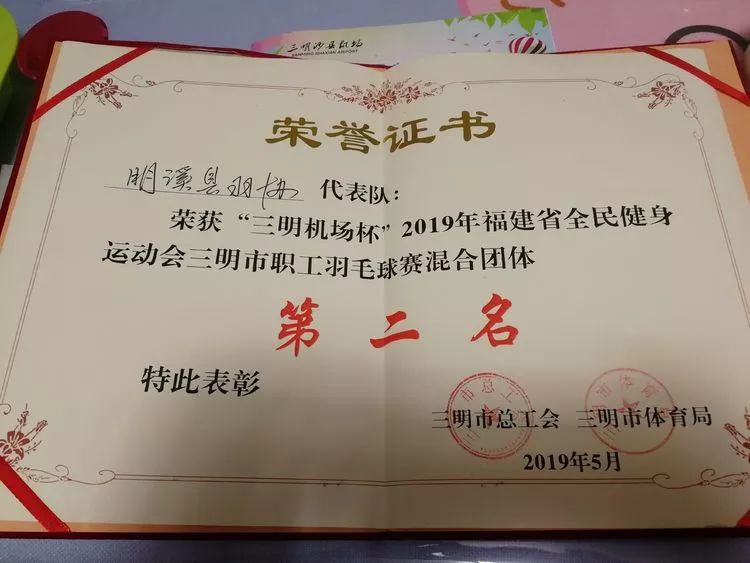 三明沙县机场
SANMING SHAXIAN AIRPORT
荣誉证书
明溪县羽协 代表队：
荣获“三明机场杯”2019年福建省全民健身
运动会三明市职工羽毛球赛混合团体
第二名
特此表彰
三明市总工会 三明市体育局
2019年5月